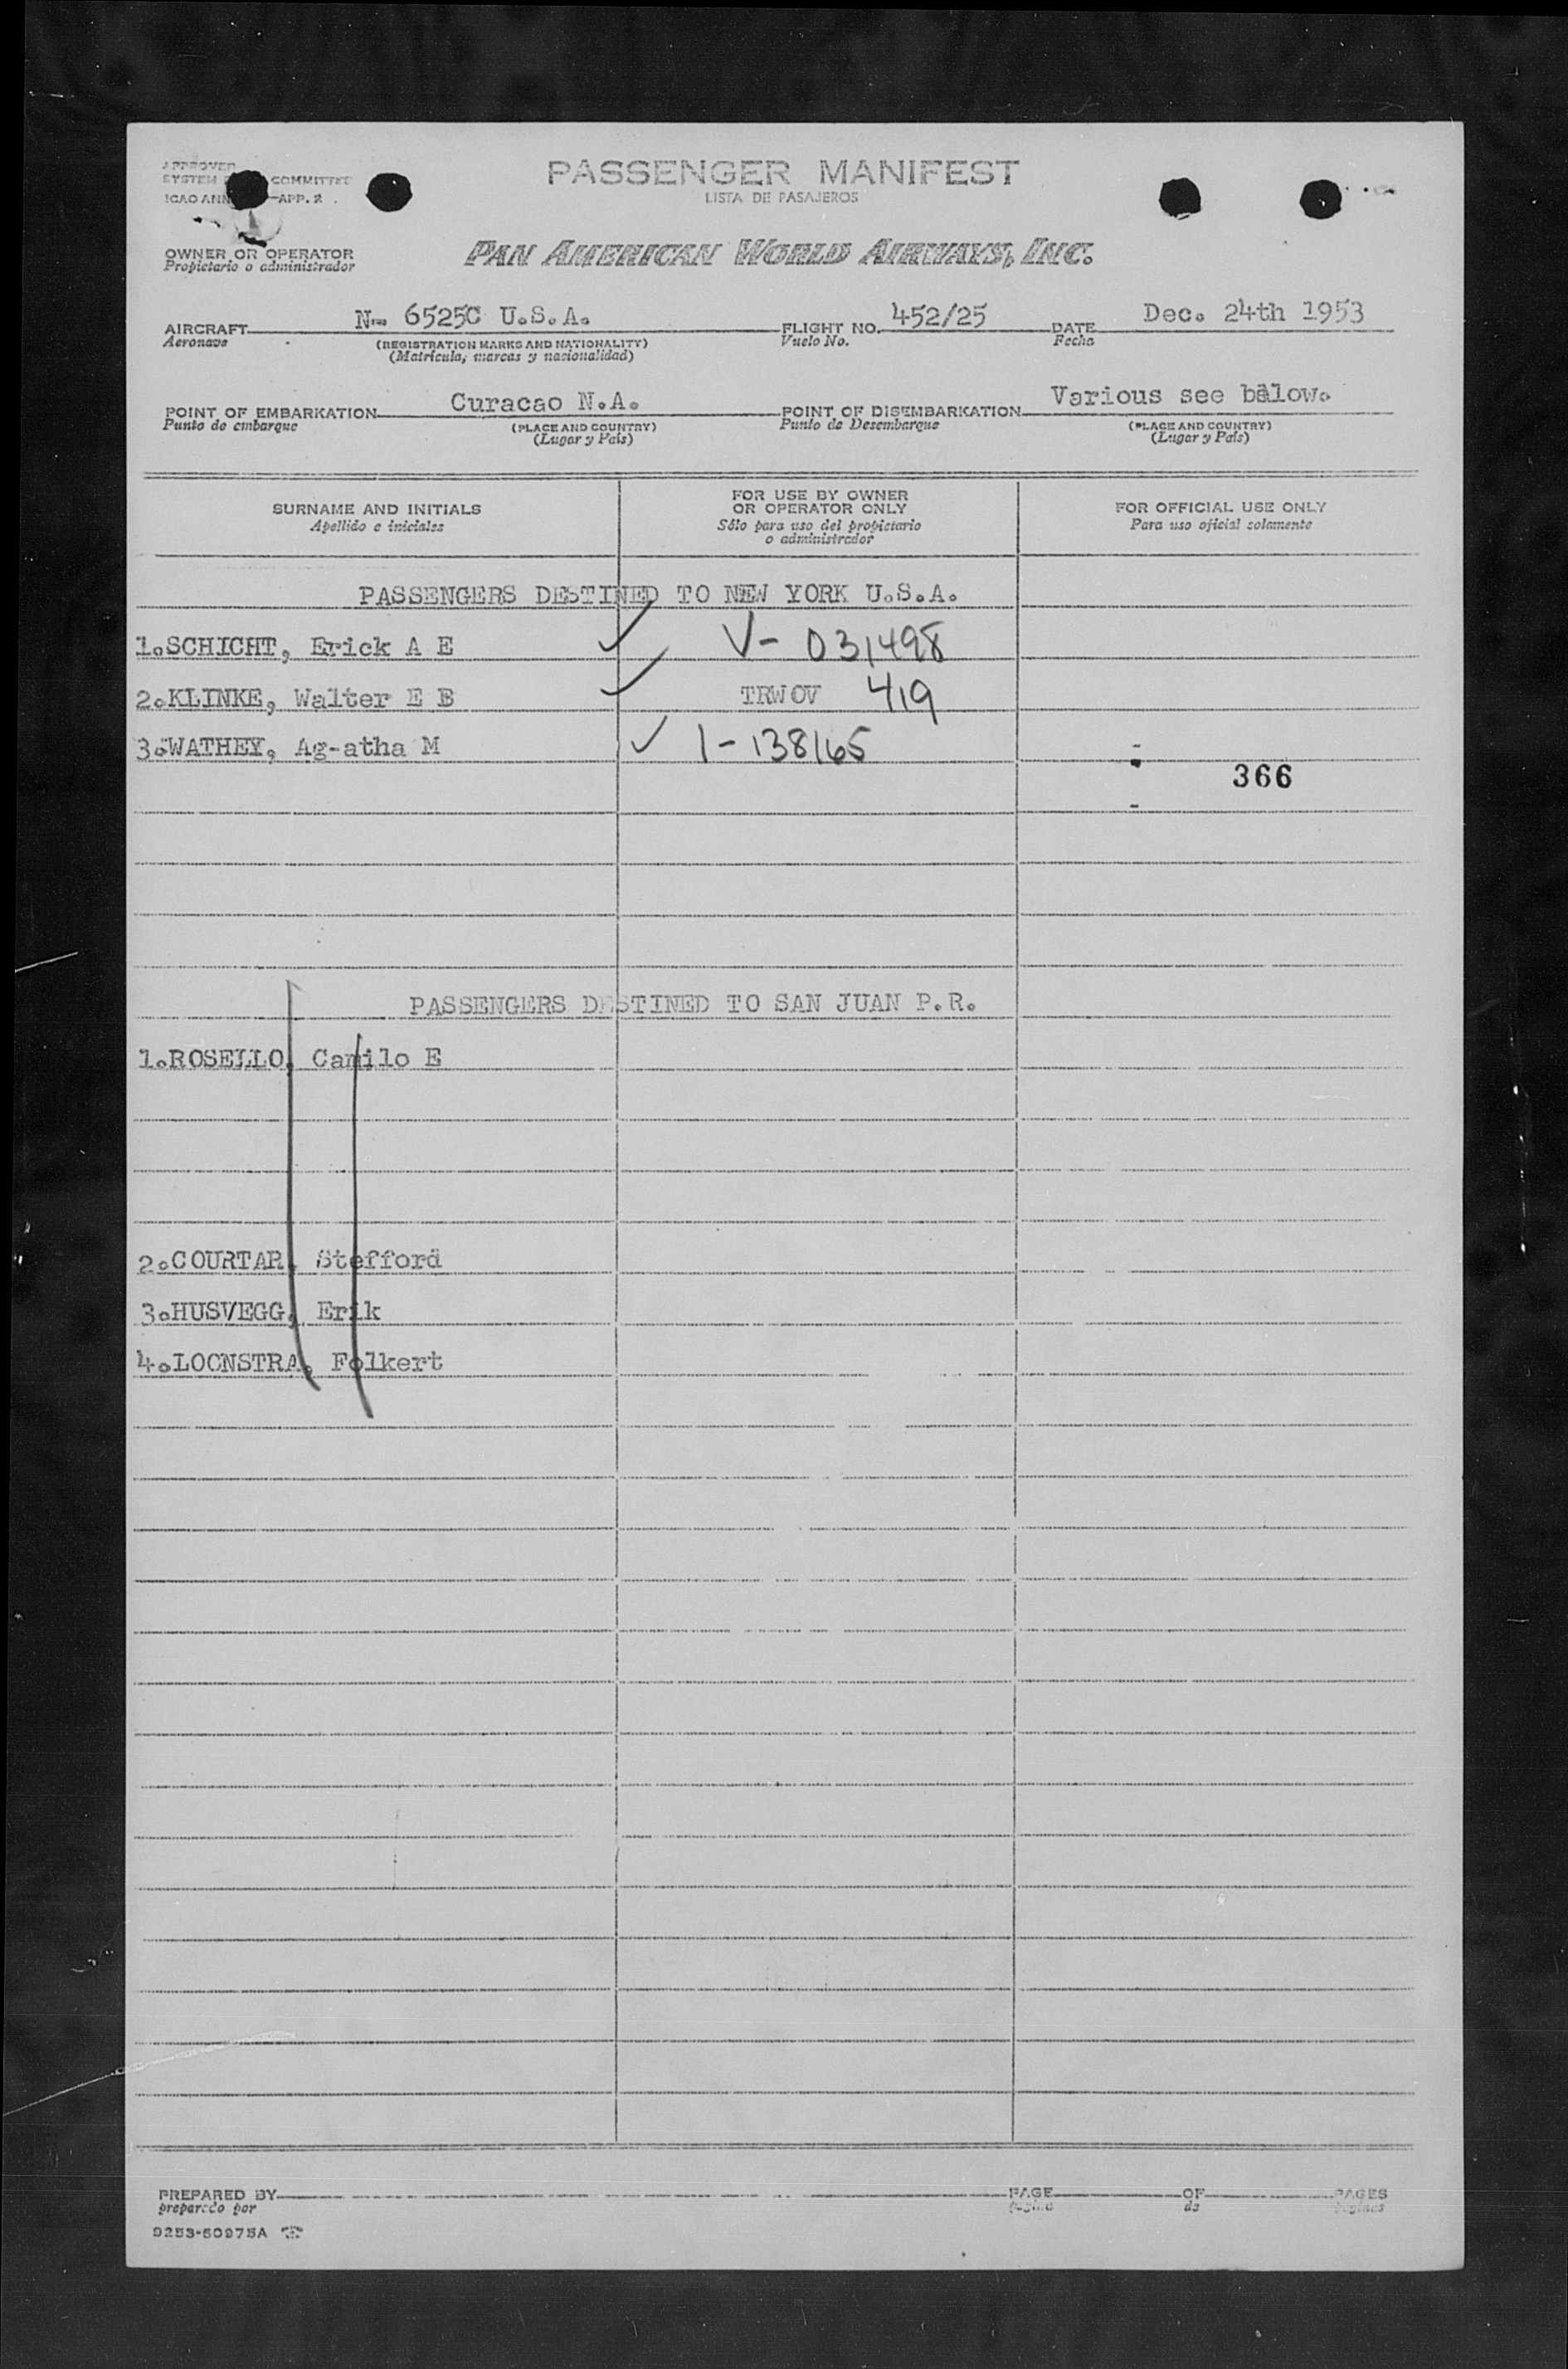 APPROVED
SYSTEM COMMITTEE
ICAO ANN APP. 2
PASSENGER MANIFEST
LISTA DE PASAJEROS
OWNER OR OPERATOR
Propietario o administrador
PAN AMERICAN WORLD AIRWAYS, INC.
AIRCRAFT N- 6525C U.S.A. FLIGHT NO. 452/25 DATE Dec. 24th 1953
Aeronave (REGISTRATION MARKS AND NATIONALITY) Vuelo No. Fecha
(Matrícula, marcas y nacionalidad)
POINT OF EMBARKATION Curacao N.A. POINT OF DISEMBARKATION Various see bàlow.
Punto de embarque (PLACE AND COUNTRY) Punto de Desembarque (PLACE AND COUNTRY)
(Lugar y País) (Lugar y País)
SURNAME AND INITIALS
Apellido e iniciales
FOR USE BY OWNER
OR OPERATOR ONLY
Sólo para uso del propietario
o administrador
FOR OFFICIAL USE ONLY
Para uso oficial solamente
PASSENGERS DESTINED TO NEW YORK U.S.A.
1.SCHICHT, Erick A E ✓ V- 031498
2.KLINKE, Walter E B ✓ TRWOV 419
3.WATHEY, Ag-atha M ✓ 1-138165
366
PASSENGERS DESTINED TO SAN JUAN P.R.
1.ROSELLO, Camilo E
2.COURTAR, Stefford
3.HUSVEGG, Erik
4.LOONSTRA, Folkert
PREPARED BY PAGE OF PAGES
preparado por página de páginas
9253-50975A